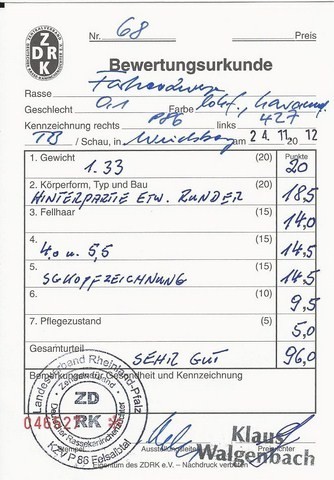 ZDRK
Nr. 68 Preis
Bewertungsurkunde
Rasse Farbenzwerge
Geschlecht 0.1 Farbe
Kennzeichnung rechts P86 links 427
TB / Schau, in am 24. 11. 20 12
Punkte
1. Gewicht (20) 20
1.33
2. Körperform, Typ und Bau (20) 18,5
HINTERPARTIE ETW. RUNDER
3. Fellhaar (15) 14,0
4. (15) 14,5
4,0 u. 5,5
5. (15) 14,5
SCKOPFZEICHNUNG
6. (10) 9,5
7. Pflegezustand (5) 5,0
Gesamturteil 96,0
SEHR GUT
Bemerkungen zu Gesundheit und Kennzeichnung
Landesverband Rheinland-Pfalz
Zentralverband
Deutscher Rassekaninchenzüchter
ZDRK
KZV P 86 Felsalbtal
Stempel Ausstellungsleiter Preisrichter
Klaus
Walgenbach
Eigentum des ZDRK e.V. – Nachdruck verboten